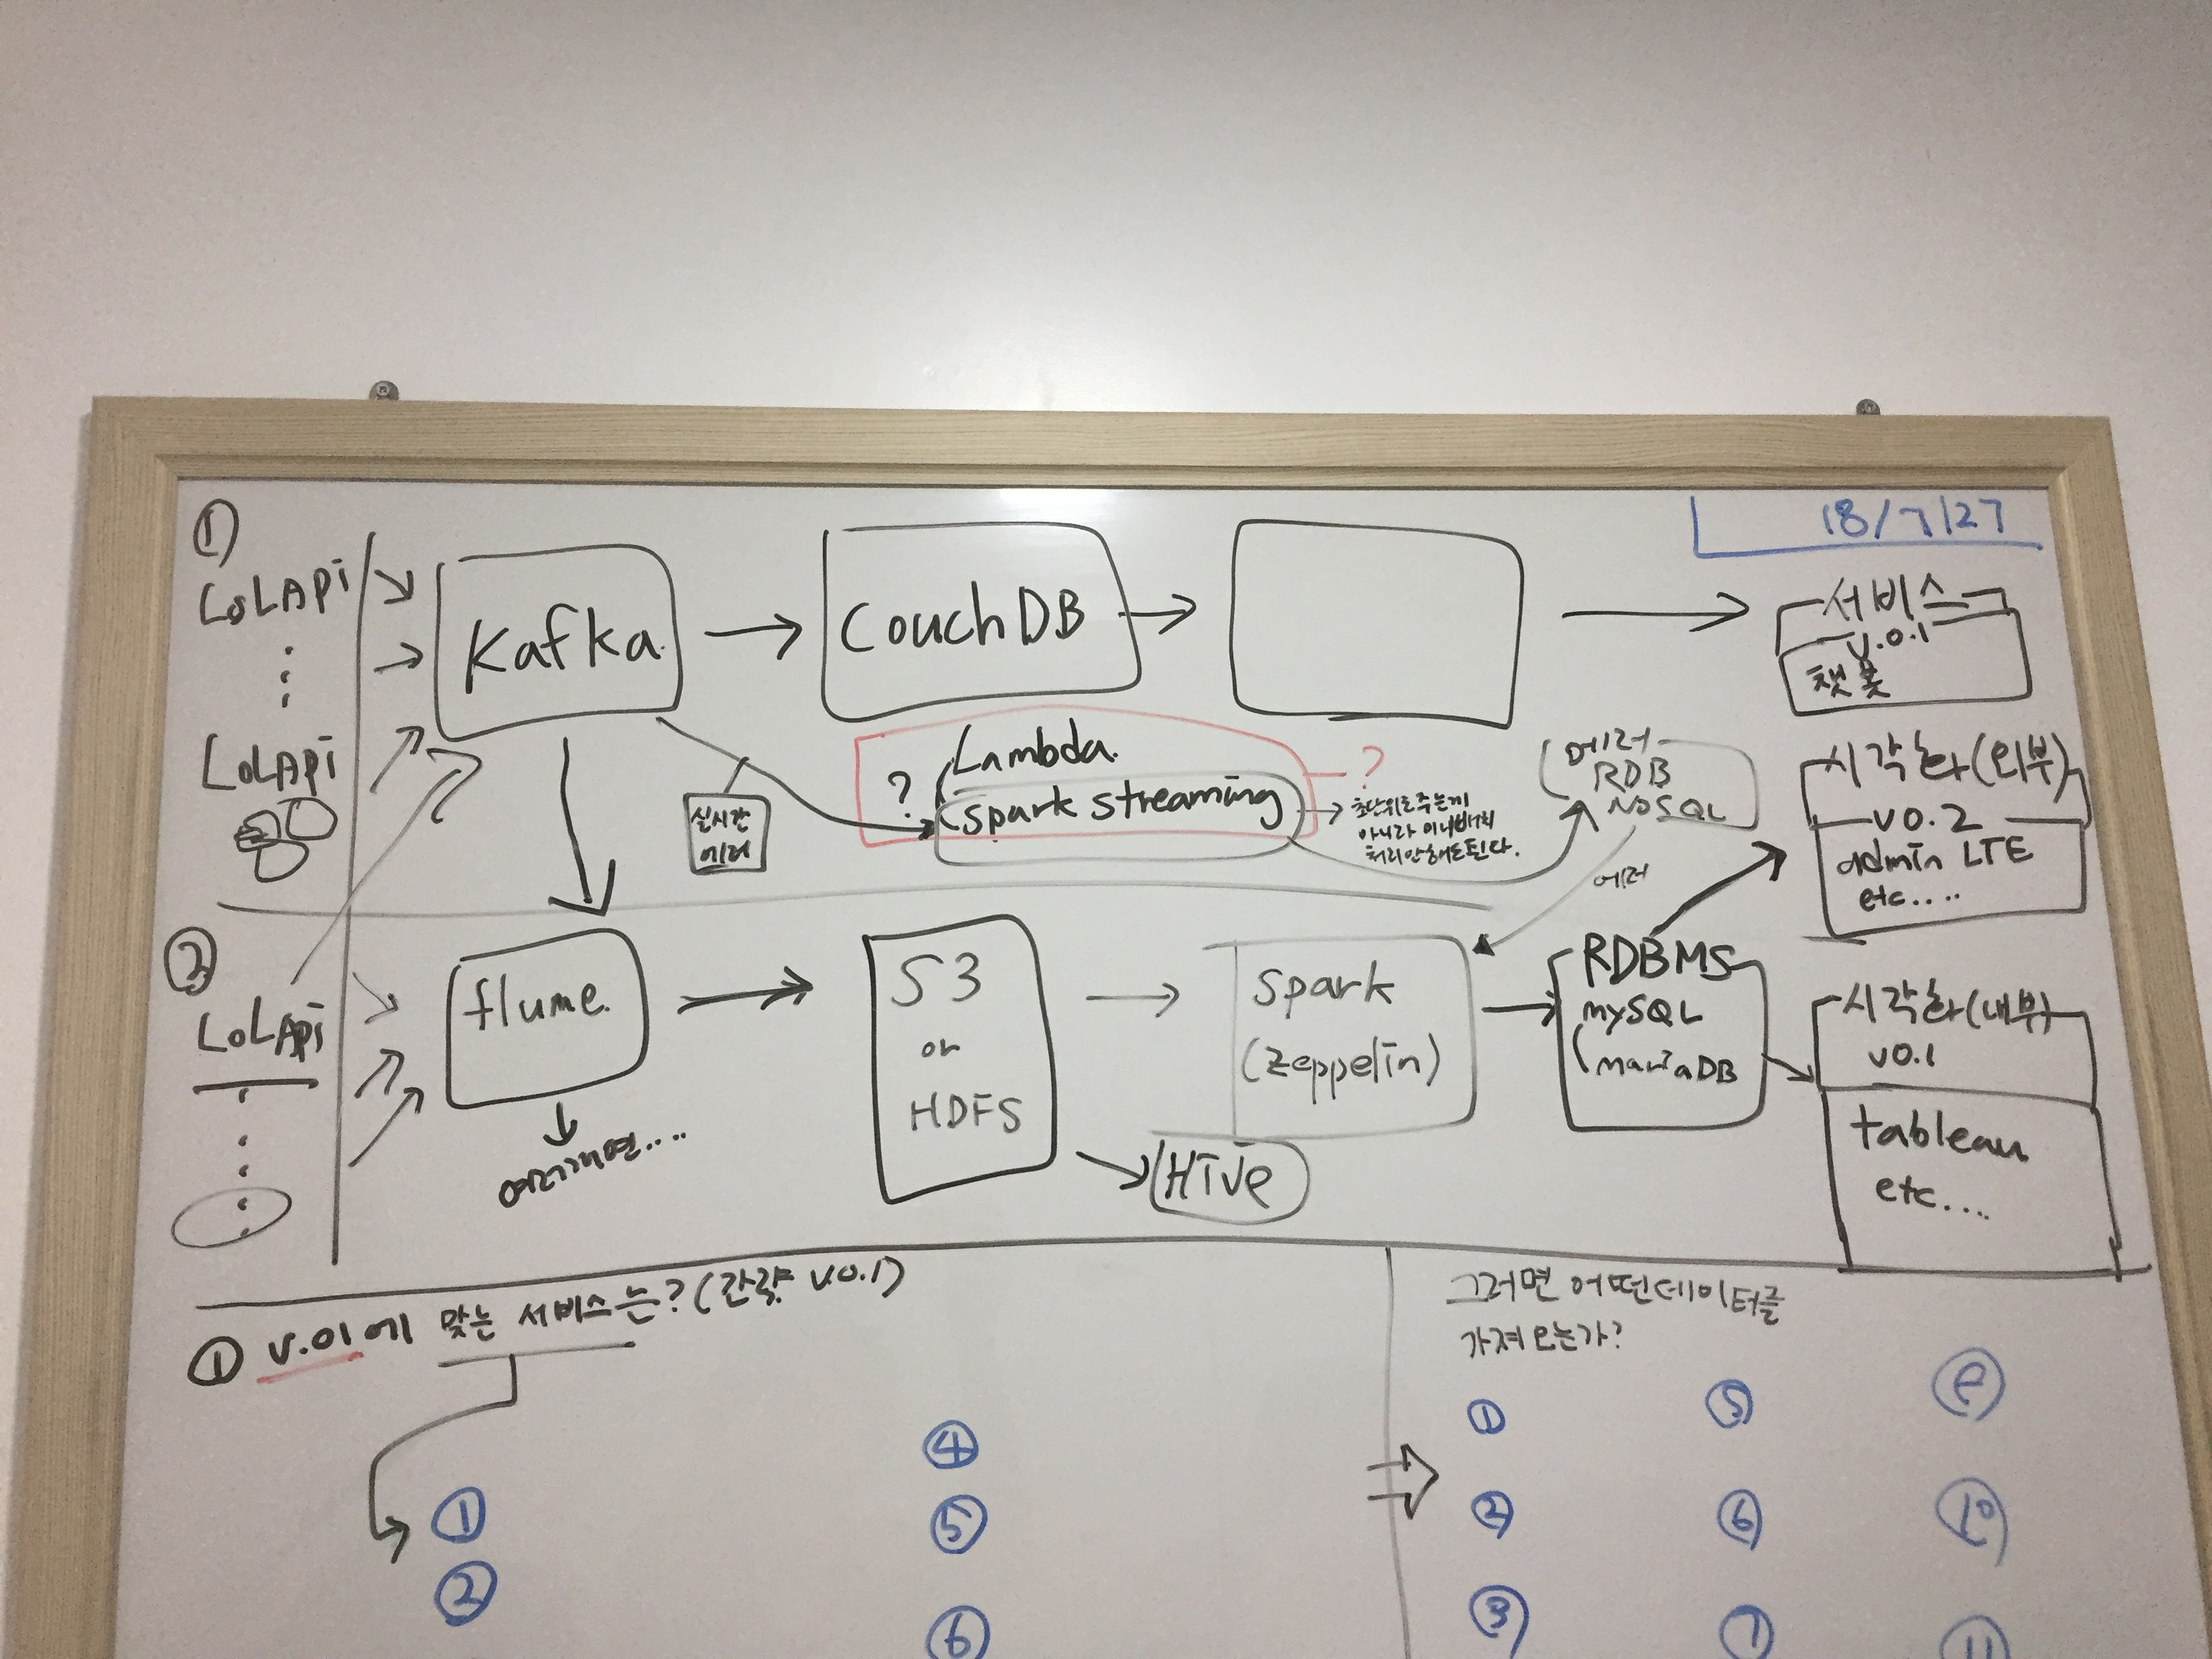 18/7/27
①
LoLAPi
LoLAPi
Kafka
CouchDB
서비스
v.0.1
챗봇
실시간
에러
?
Lambda
spark streaming
?
초단위로주는게
아니라 미니배치
처리안해도된다.
에러
RDB
NoSQL
에러
시각화(외부)
v0.2
admin LTE
etc....
②
LoLAPi
flume
여러개면....
S3
or
HDFS
Spark
(Zeppelin)
Hive
RDBMS
mySQL
(mariaDB
시각화(내부)
v0.1
tableau
etc....
① v.01에 맞는 서비스는? (간략 v.0.1)
①
②
④
⑤
⑥
그러면 어떤데이터를
가져오는가?
①
②
③
⑤
⑥
⑦
⑩
11